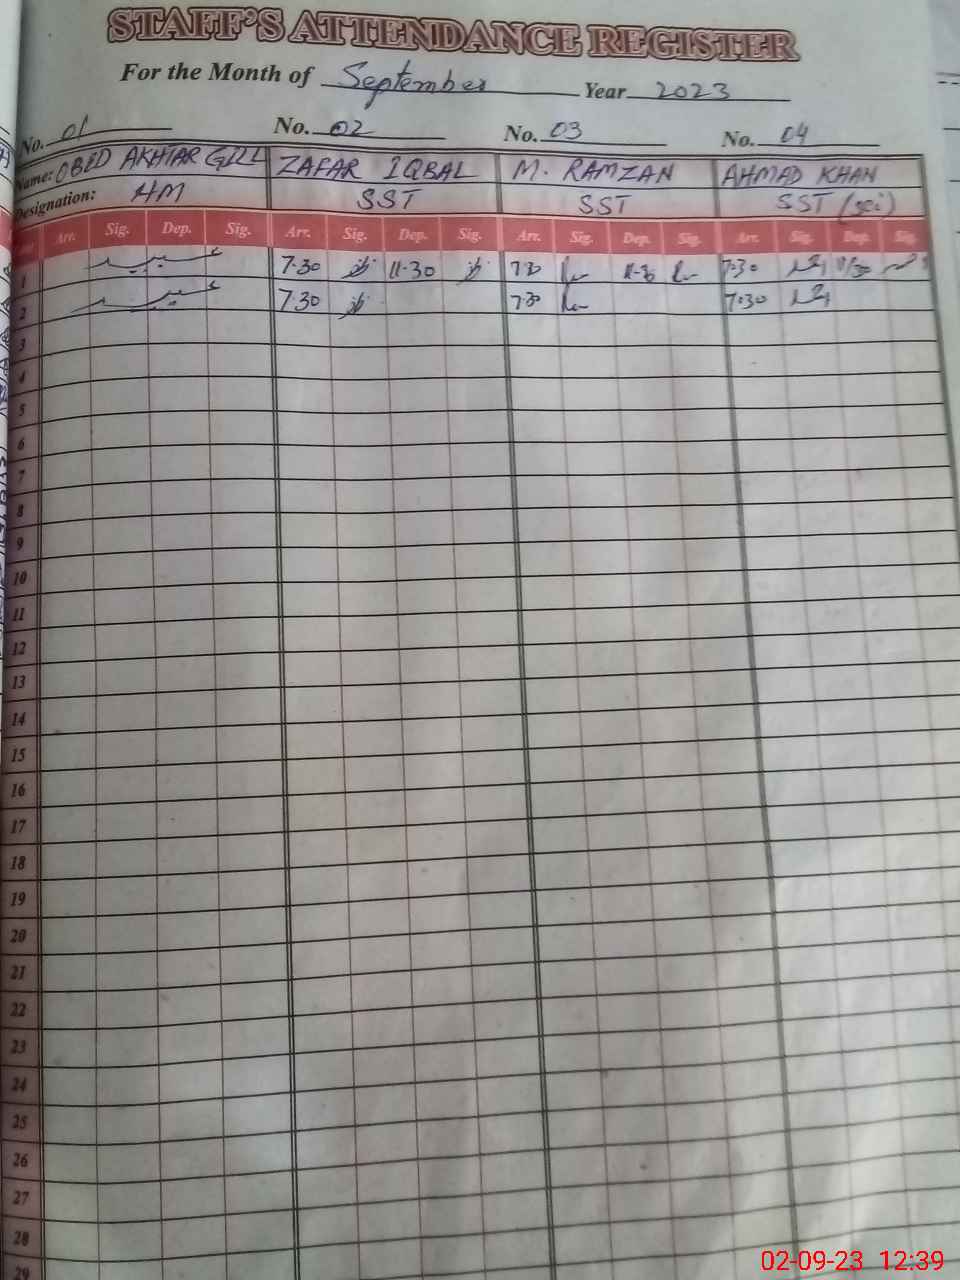 STAFF'S ATTENDANCE REGISTER
For the Month of September Year 2023
No. 01 No. 02 No. 03 No. 04
Name: OBED AKHTAR GILL ZAFAR IQBAL M. RAMZAN AHMAD KHAN
Designation: HM SST SST SST (sci)
Arr. Sig. Dep. Sig. Arr. Sig. Dep. Sig. Arr. Sig. Dep. Sig. Arr. Sig. Dep. Sig.
1 7.30 11.30 7.30 11.30 7.30 11/30
2 7.30 7.30 7.30
3
4
5
6
7
8
9
10
11
12
13
14
15
16
17
18
19
20
21
22
23
24
25
26
27
28
29
02-09-23 12:39